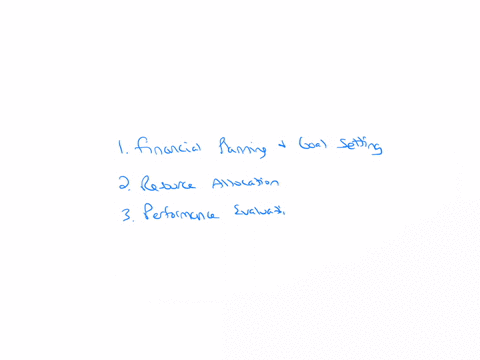 1. Financial Planning + Goal Setting
2. Resource Allocation
3. Performance Evaluati